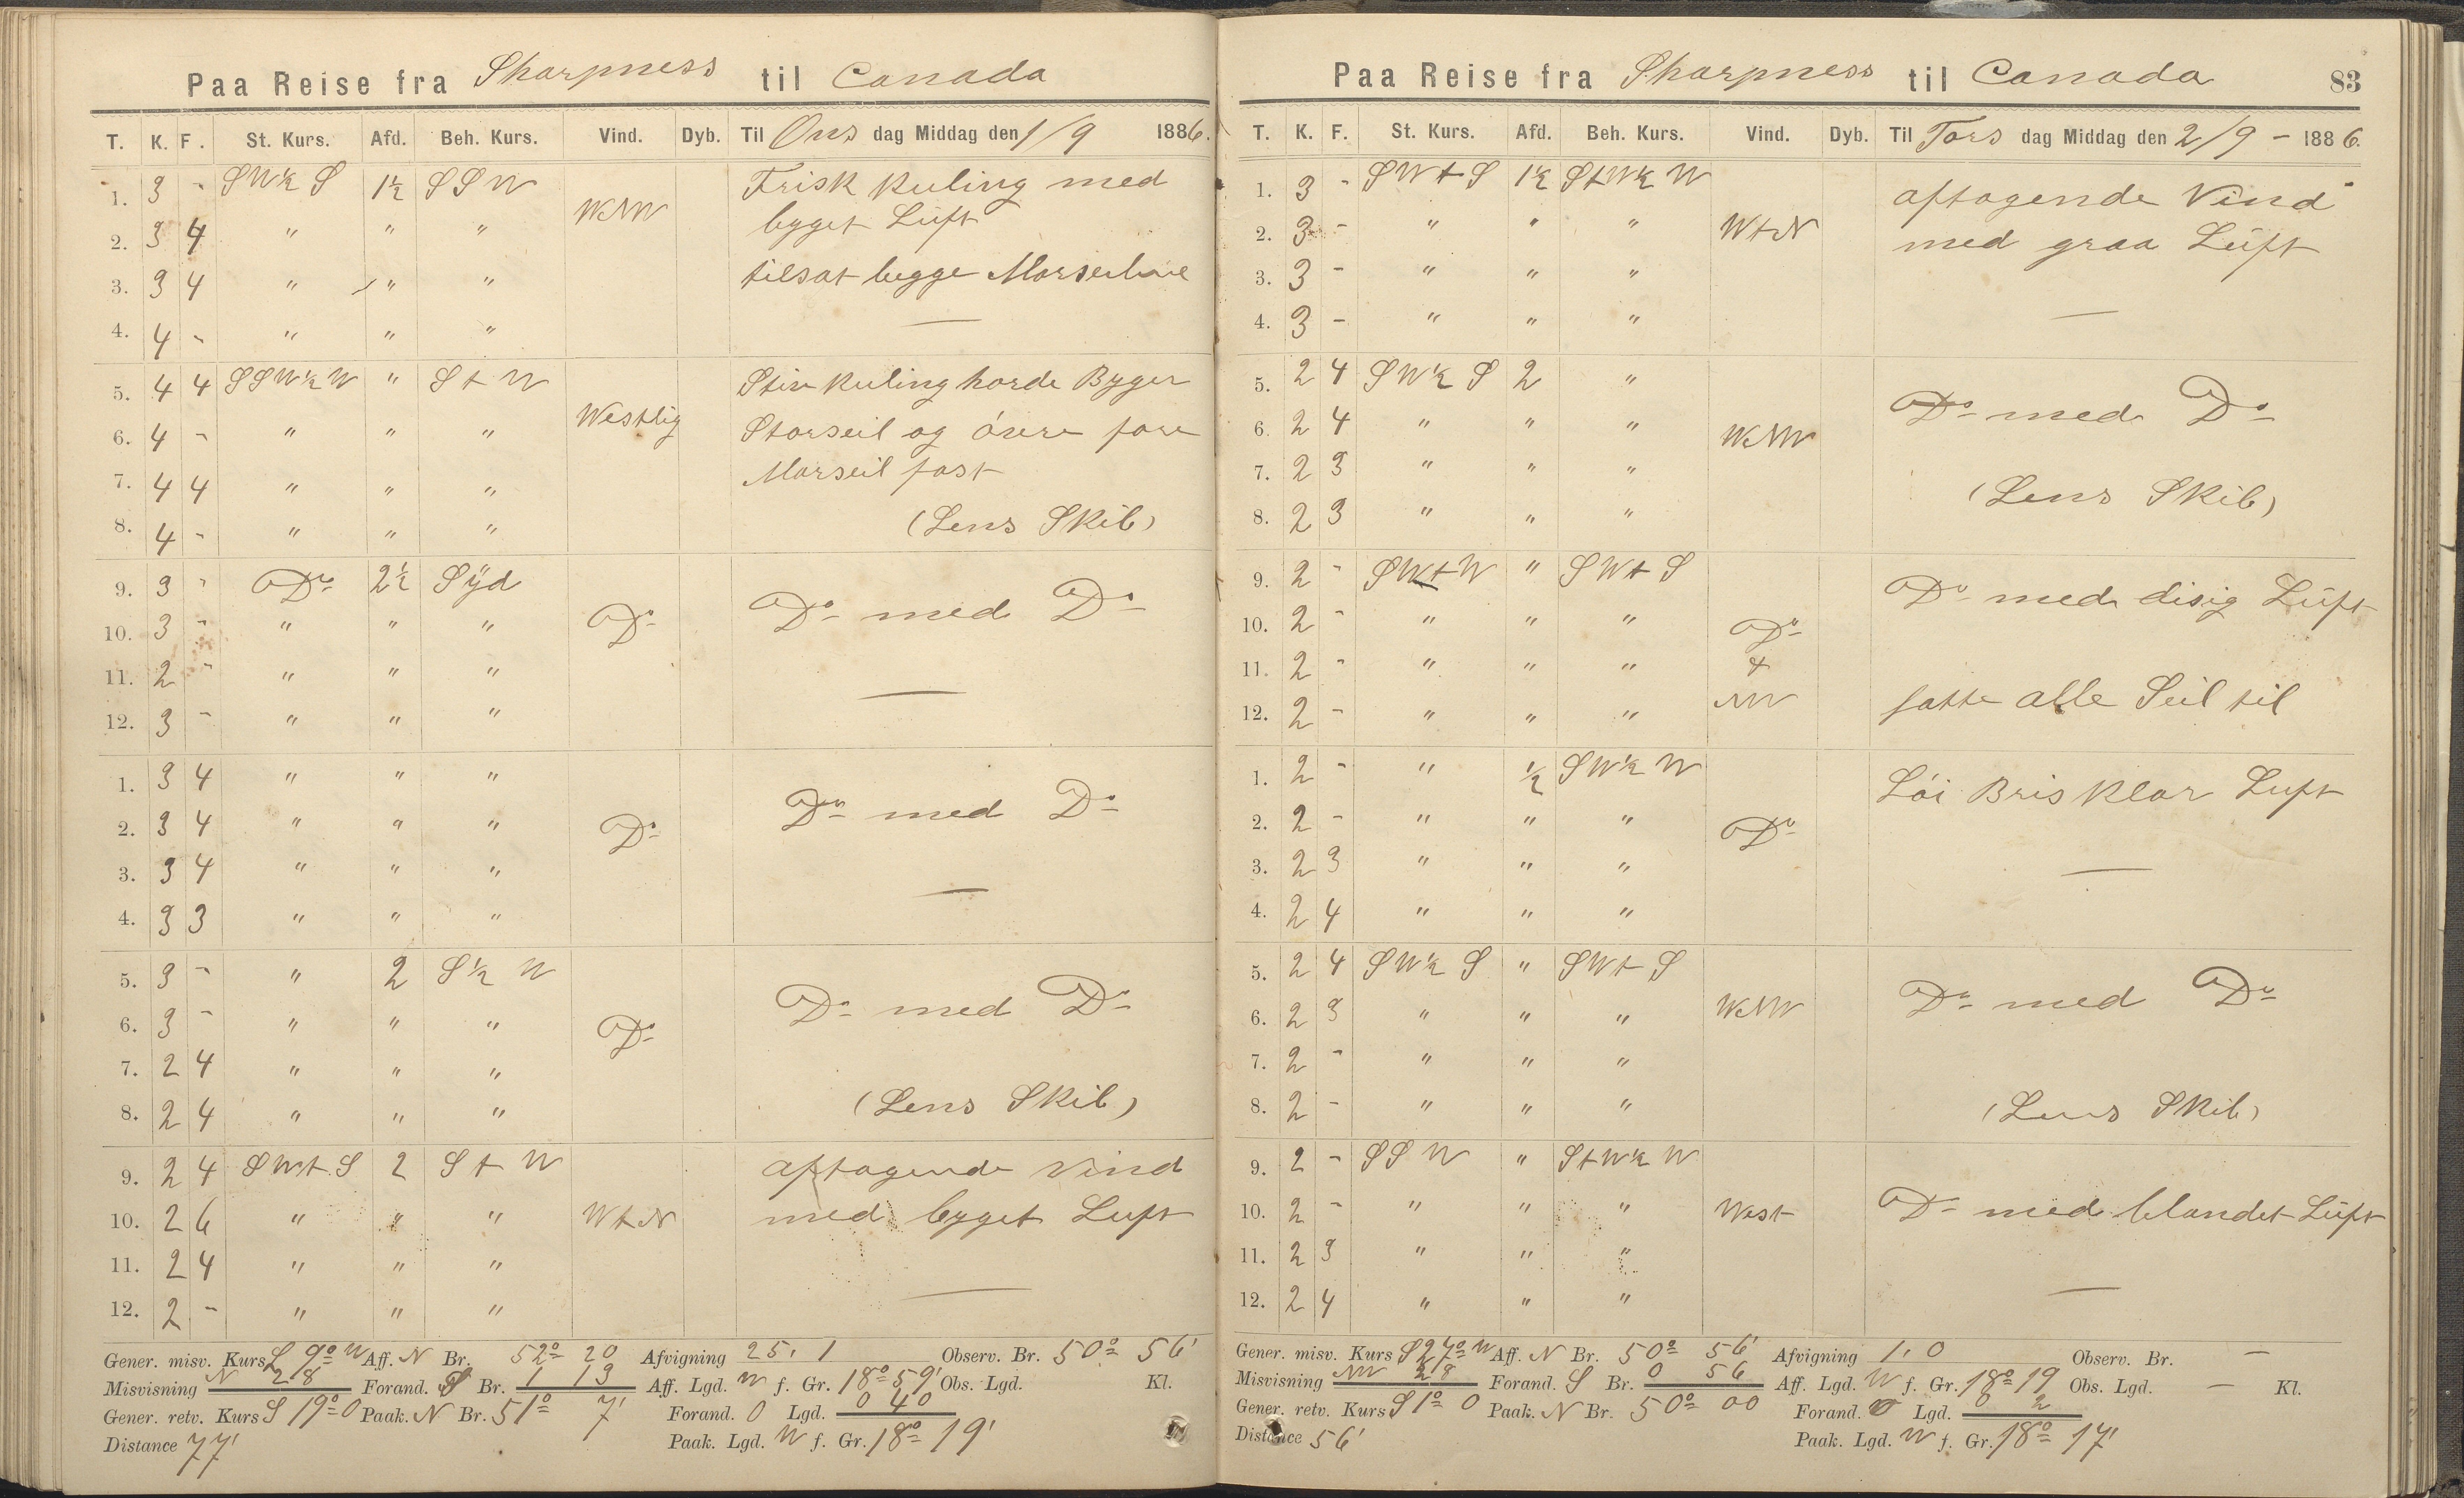 Paa Reise fra Sharpness til Canada
T. K. F. St. Kurs. Afd. Beh. Kurs. Vind. Dyb. Til Ons dag Middag den 1/9 1886.
1. 3 - SW½ S 1½ SSW Frisk Kuling med
2. 3 4 " " " WNW byget Lüft
3. 3 4 " " " tilsat begge Merseilene
4. 4 - " " "
5. 4 4 SSW½ W " S t W Stiv Kuling harde Byger
6. 4 - " " " Westlig Storseil og övere fore
7. 4 4 " " " Marseil fast
8. 4 - " " " (Lens Skib)
9. 3 - Do 2½ Syd Do med Do
10. 3 - " " " Do
11. 2 - " " "
12. 3 - " " "
1. 3 4 " " " Do med Do
2. 3 4 " " " Do
3. 3 4 " " "
4. 3 3 " " "
5. 3 - " 2 S½ W Do med Do
6. 3 - " " " Do
7. 2 4 " " "
8. 2 4 " " " (Lens Skib)
9. 2 4 SWt S 2 S t W aftagende Vind
10. 2 6 " " " WtN med byget Luft
11. 2 4 " " "
12. 2 - " " "
Gener. misv. Kurs S 9° W Aff. N Br. 52° 20 Afvigning 25,1 Observ. Br. 50° 56'
Misvisning N 28 Forand. S Br. 1 13 Aff. Lgd. W f. Gr. 18° 59' Obs. Lgd. Kl.
Gener. retv. Kurs S 19° O Paak. N Br. 51° 7' Forand. O Lgd. 0 40
Distance 77' Paak. Lgd. W f. Gr. 18° 19'
Paa Reise fra Sharpness til Canada 83
T. K. F. St. Kurs. Afd. Beh. Kurs. Vind. Dyb. Til Tors dag Middag den 2/9 - 1886.
1. 3 - SWt S 1½ StW½ W aftagende Vind
2. 3 - " " " WtN med graa Lüft
3. 3 - " " "
4. 3 - " " "
5. 2 4 SW½ S 2 " Do med Do
6. 2 4 " " " WNW
7. 2 3 " " "
8. 2 3 " " " (Lens Skib)
9. 2 - SWtW " SWt S Do med disig Lüft
10. 2 - " " " Do
11. 2 - " " " t
12. 2 - " " " NW satte alle Seil til
1. 2 - " ½ SW½ W Löi Bris Klar Luft
2. 2 - " " " Do
3. 2 3 " " "
4. 2 4 " " "
5. 2 4 SW½ S " SWt S Do med Do
6. 2 3 " " " WNW
7. 2 - " " "
8. 2 - " " " (Lens Skib)
9. 2 - SSW " StW½ W
10. 2 - " " " West Do med blandet Lüft
11. 2 3 " " "
12. 2 4 " " "
Gener. misv. Kurs S 27° W Aff. N Br. 50° 56' Afvigning 1,0 Observ. Br. —
Misvisning NW 28 Forand. S Br. 0 56 Aff. Lgd. W f. Gr. 18° 19 Obs. Lgd. — Kl.
Gener. retv. Kurs S 1° O Paak. N Br. 50° 00 Forand. O Lgd. 0 2
Distance 56' Paak. Lgd. W f. Gr. 18° 17'